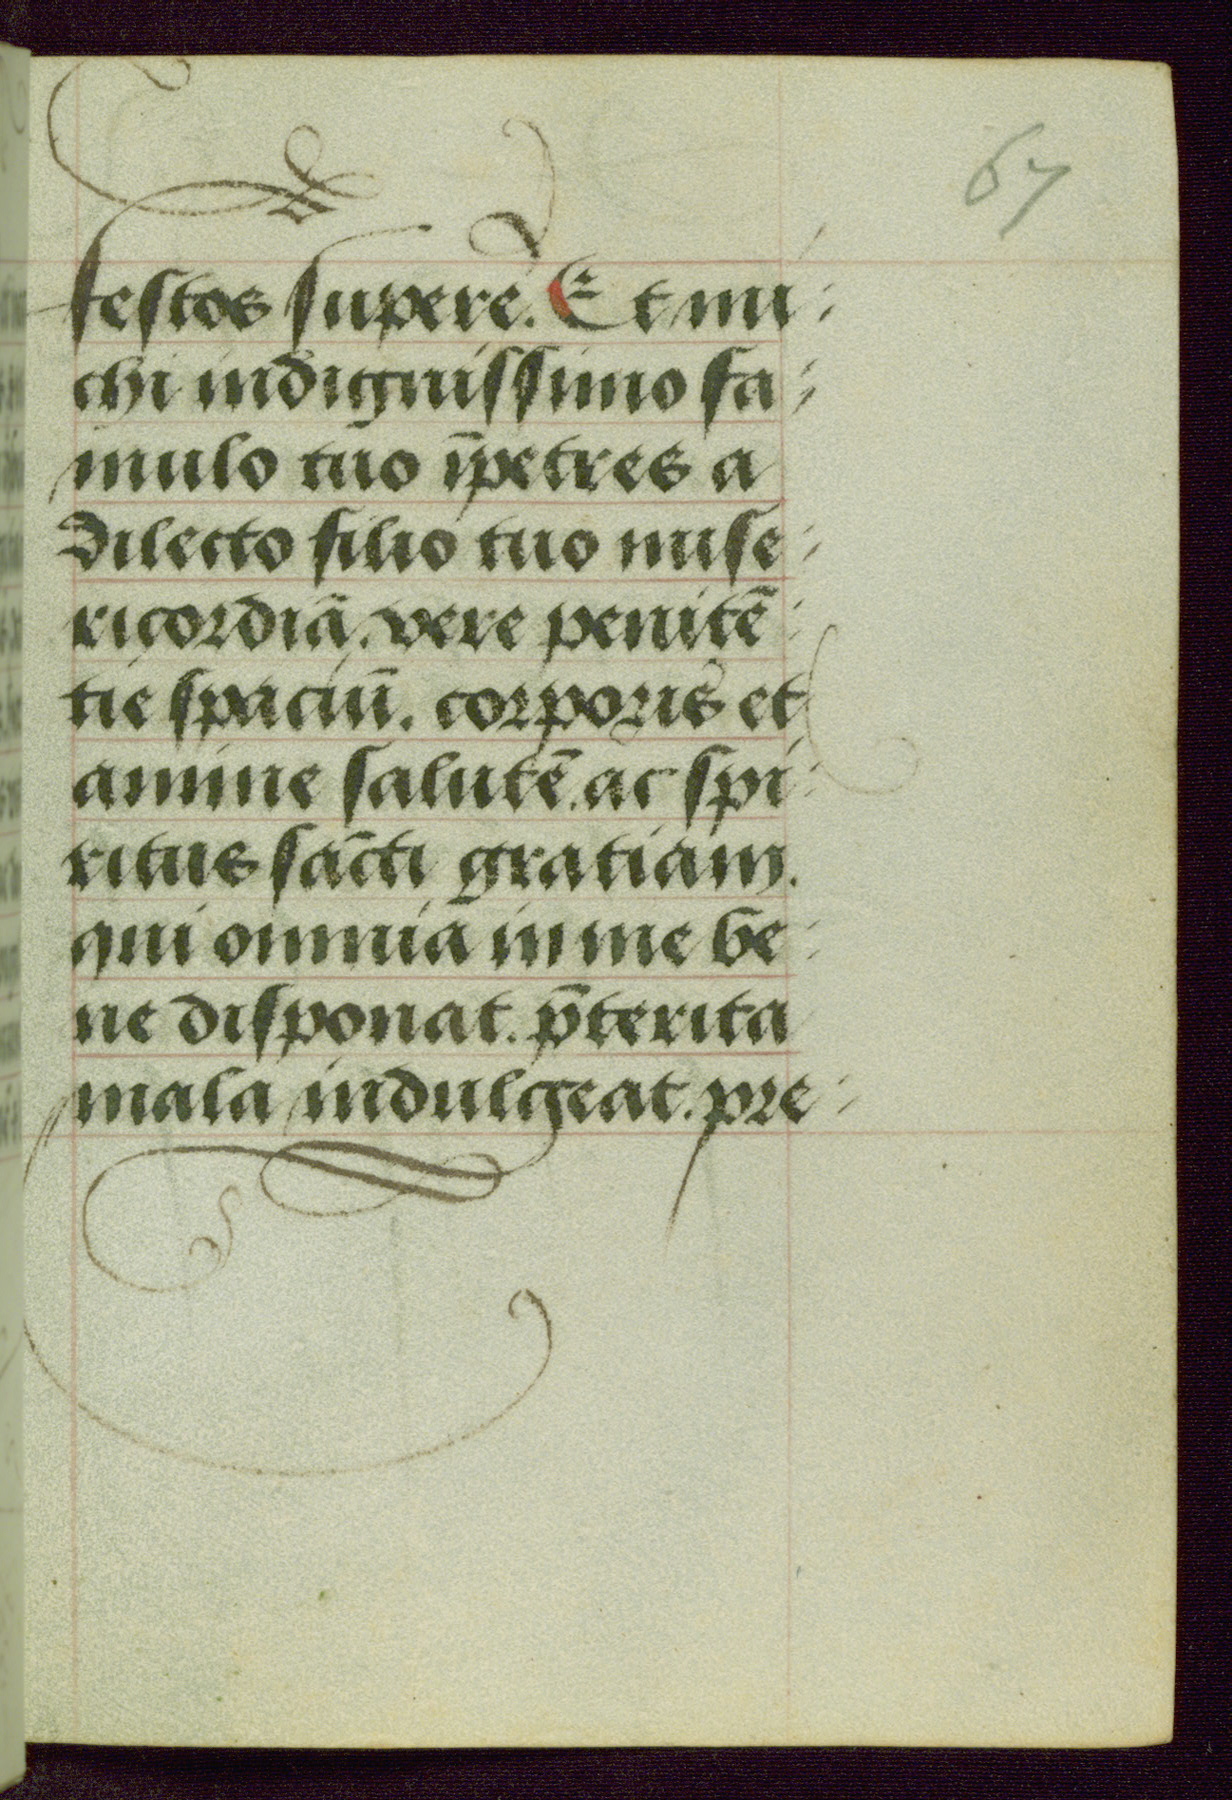 67
festos supere. Et mi⸗
chi indignissimo fa⸗
mulo tuo īpetres a
dilecto filio tuo mise⸗
ricordiā. vere penitē⸗
tie spaciū. corporis et
anime salutē. ac spi⸗
ritus sācti gratiam.
qui omnia in me be⸗
ne disponat. p̄terita
mala indulgeat. pre⸗